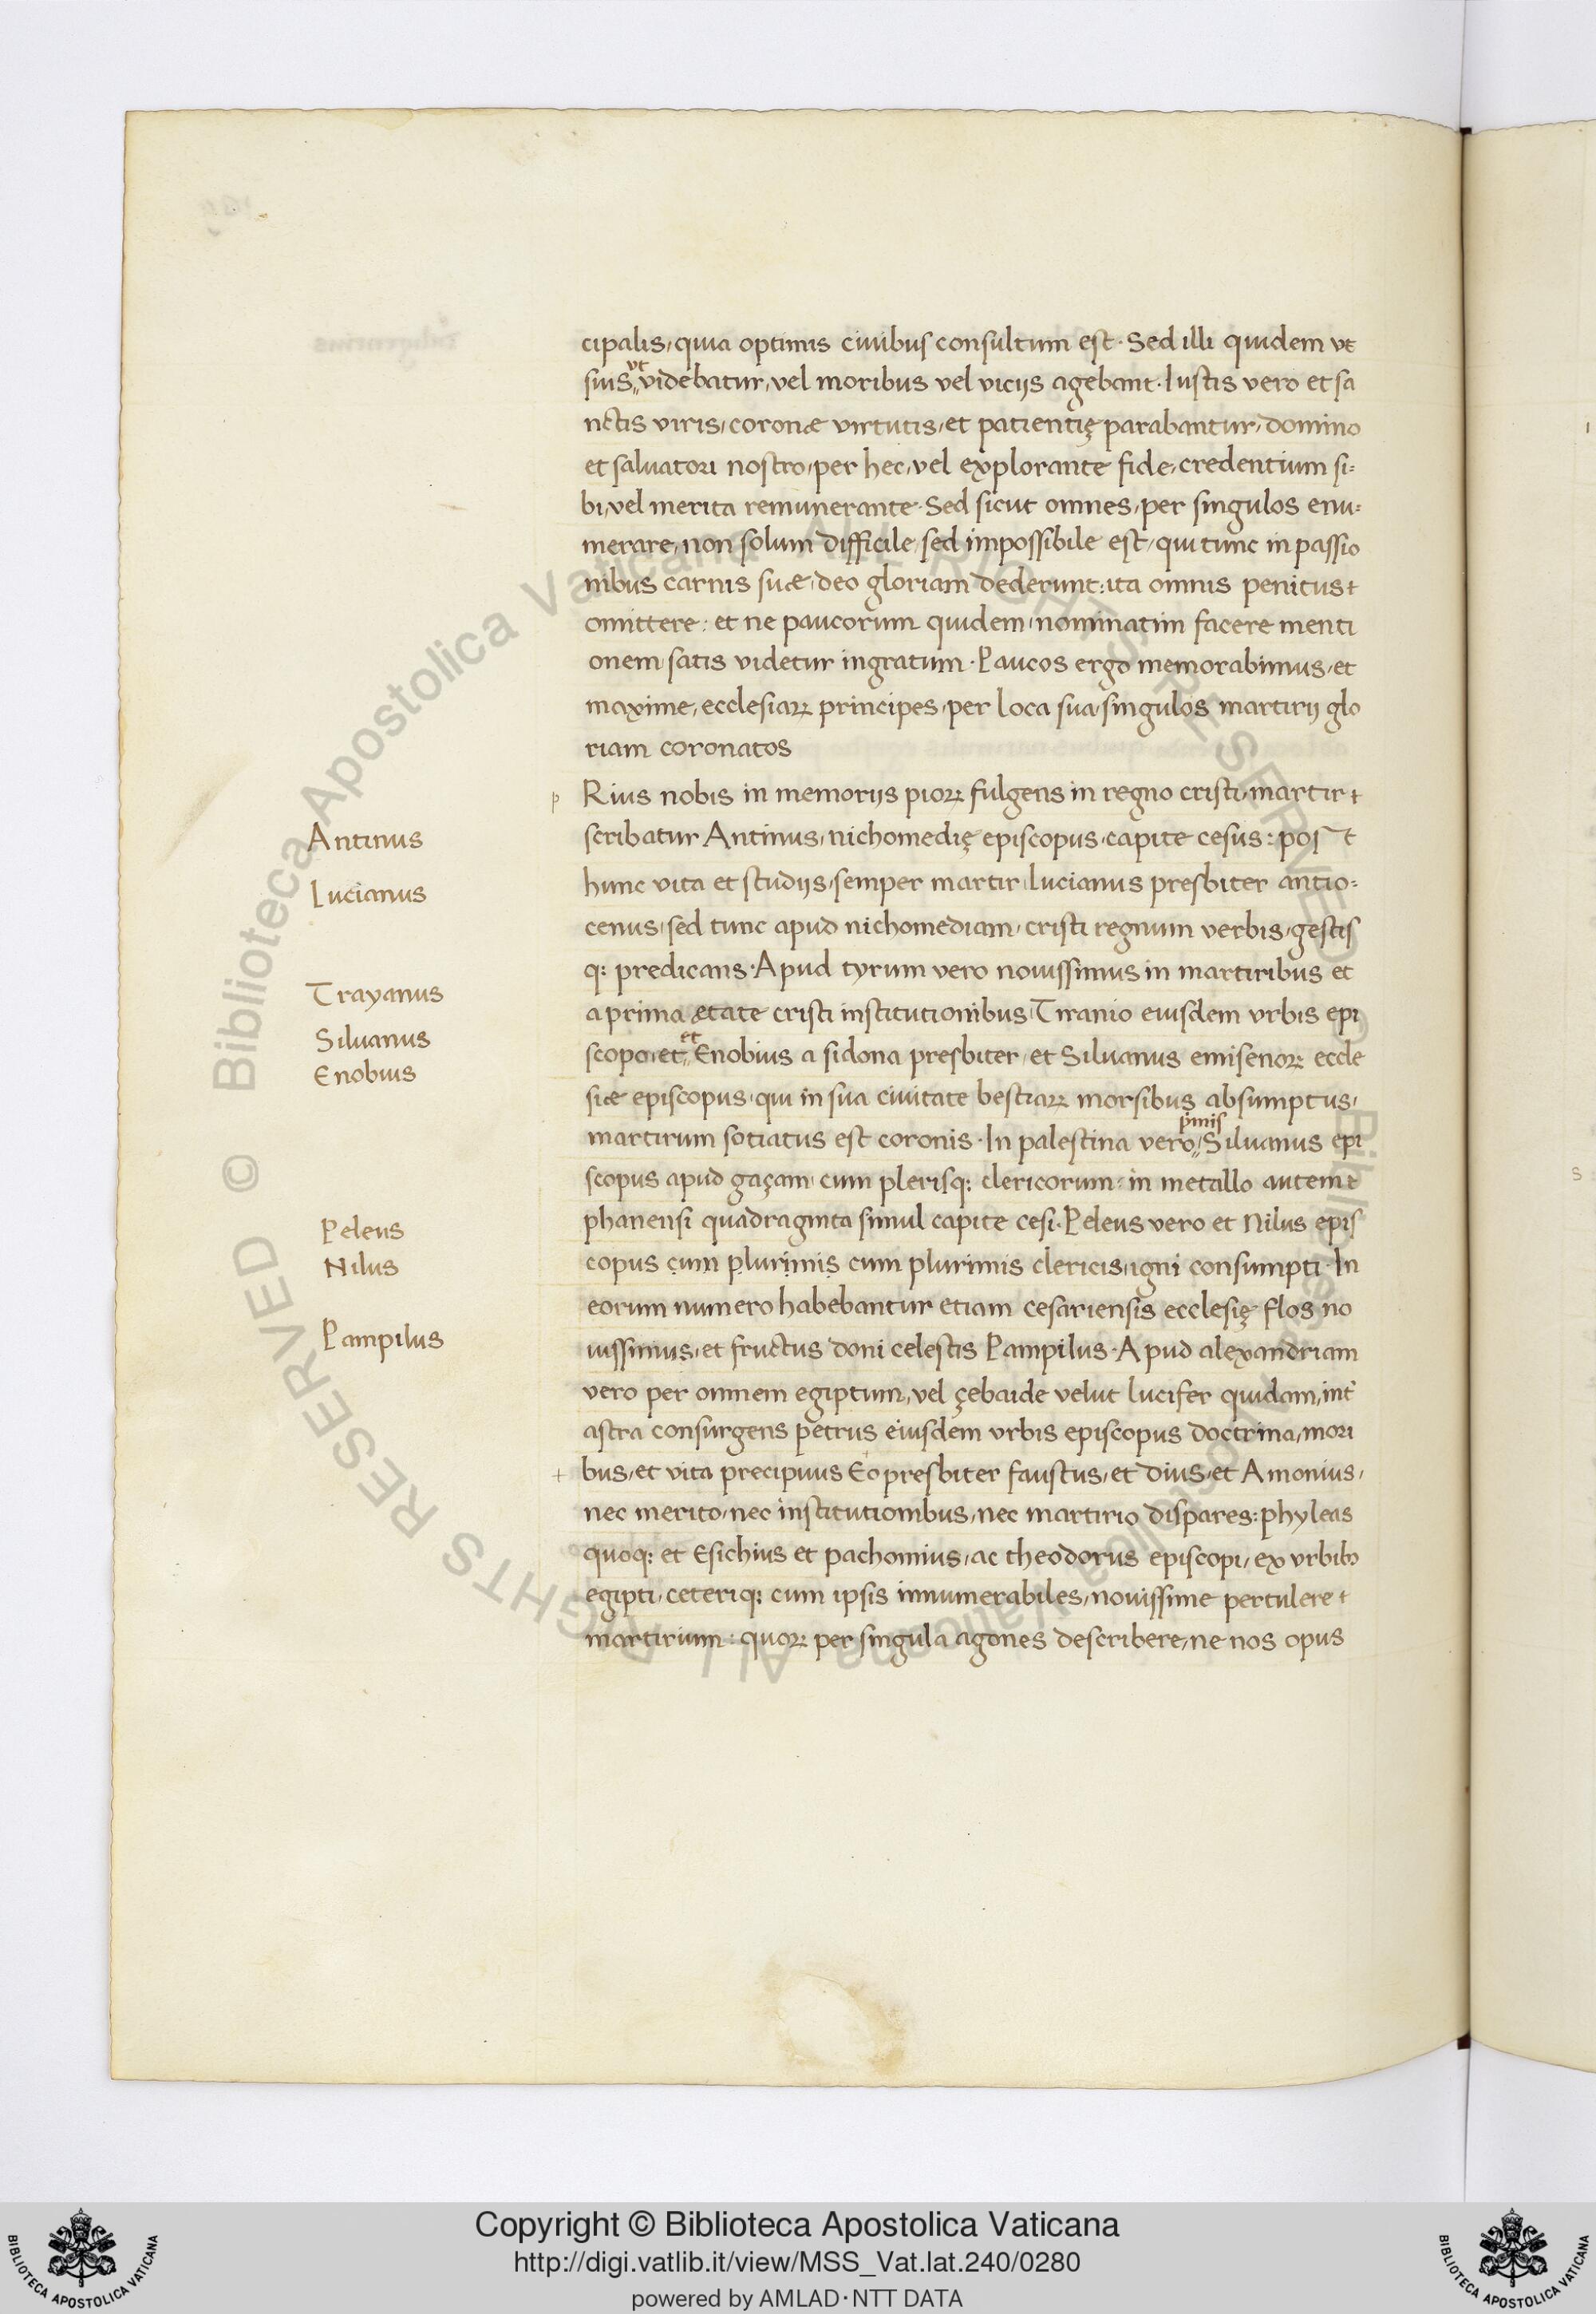 cipalis, quia optimis ciuibus consultum est. Sed illi quidem vt
suis vt videbatur, vel moribus vel vicijs agebant. Iustis vero et sa
nctis viris, coronæ virtutis, et patientię parabantur, domino
et saluatori nostro, per hec, vel explorante fide, credentium si=
bi, vel merita remunerante. Sed sicut omnes, per singulos enu=
merare, non solum difficile, sed impossibile est, qui tunc in passio
nibus carnis suæ, deo gloriam dederunt: ita omnis penitus
omittere: et ne paucorum quidem, nominatim facere menti
onem, satis videtur ingratum. Paucos ergo memorabimus, et
maxime, ecclesiaꝝ principes, per loca sua, singulos martirij glo
riam coronatos
p Rius nobis in memorijs pioꝝ fulgens in regno cristi, martir
Antinus
scribatur Antinus, nichomedię episcopus, capite cesus: post
Lucianus
hunc vita et studijs, semper martir, Lucianus presbiter antio=
cenus, sed tunc apud nichomediam, cristi regnum verbis, gestis
q: predicans. Apud tyrum vero nouissimus in martiribus et
Trayanus
a prima ætate cristi institutionibus, Tiranio eiusdem vrbis epi
Siluanus
scopo, et et Enobius a sidona presbiter, et Siluanus emisenoꝝ eccle
Enobius
siæ episcopus, qui in sua ciuitate bestiaꝝ morsibus absumptus,
martirum sotiatus est coronis. In palestina vero, pmis Siluanus epi
scopus apud gaçam, cum plerisq: clericorum, in metallo autem
Peleus
phanensi quadraginta simul capite cesi. Peleus vero et Nilus epis
Nilus
copus cum plurimis cum plurimis clericis, igni consumpti. In
eorum numero habebantur etiam cesariensis ecclesię flos no
Pampilus
uissimus, et fructus doni celestis Pampilus. Apud alexandriam
vero per omnem egiptum, vel çebaide velut lucifer quidam, int
astra consurgens petrus eiusdem vrbis episcopus doctrina, mori
+ bus, et vita precipuus Eo presbiter faustus, et dius, et Amonius,
nec merito, nec institutionibus, nec martirio dispares: phyleas
quoq: et Esichius et pachomius, ac theodorus episcopi, ex vrbibꝰ
egipti, ceteriq: cum ipsis innumerabiles, nouissime pertulere
martirium: quoꝝ per singula agones describere, ne nos opus
Copyright © Biblioteca Apostolica Vaticana
http://digi.vatlib.it/view/MSS_Vat.lat.240/0280
powered by AMLAD·NTT DATA